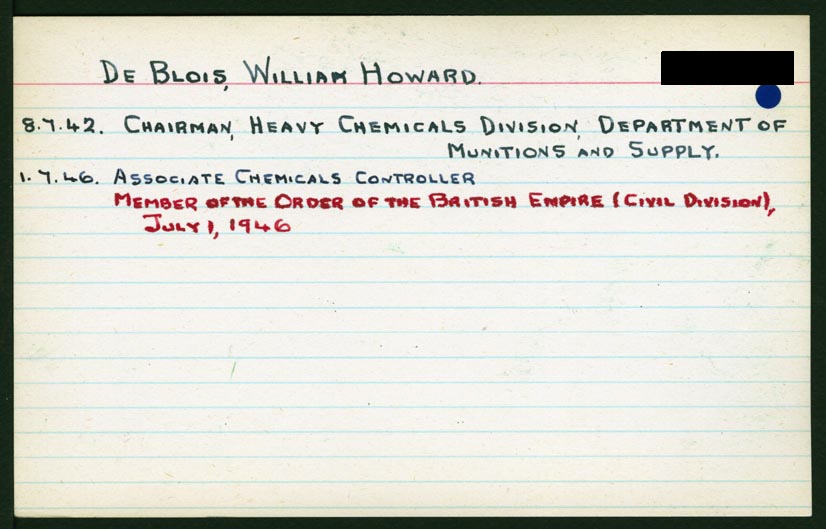 DE BLOIS, WILLIAM HOWARD.
8.7.42. CHAIRMAN, HEAVY CHEMICALS DIVISION, DEPARTMENT OF
MUNITIONS AND SUPPLY.
1.7.46. ASSOCIATE CHEMICALS CONTROLLER
MEMBER OF THE ORDER OF THE BRITISH EMPIRE (CIVIL DIVISION),
JULY 1, 1946